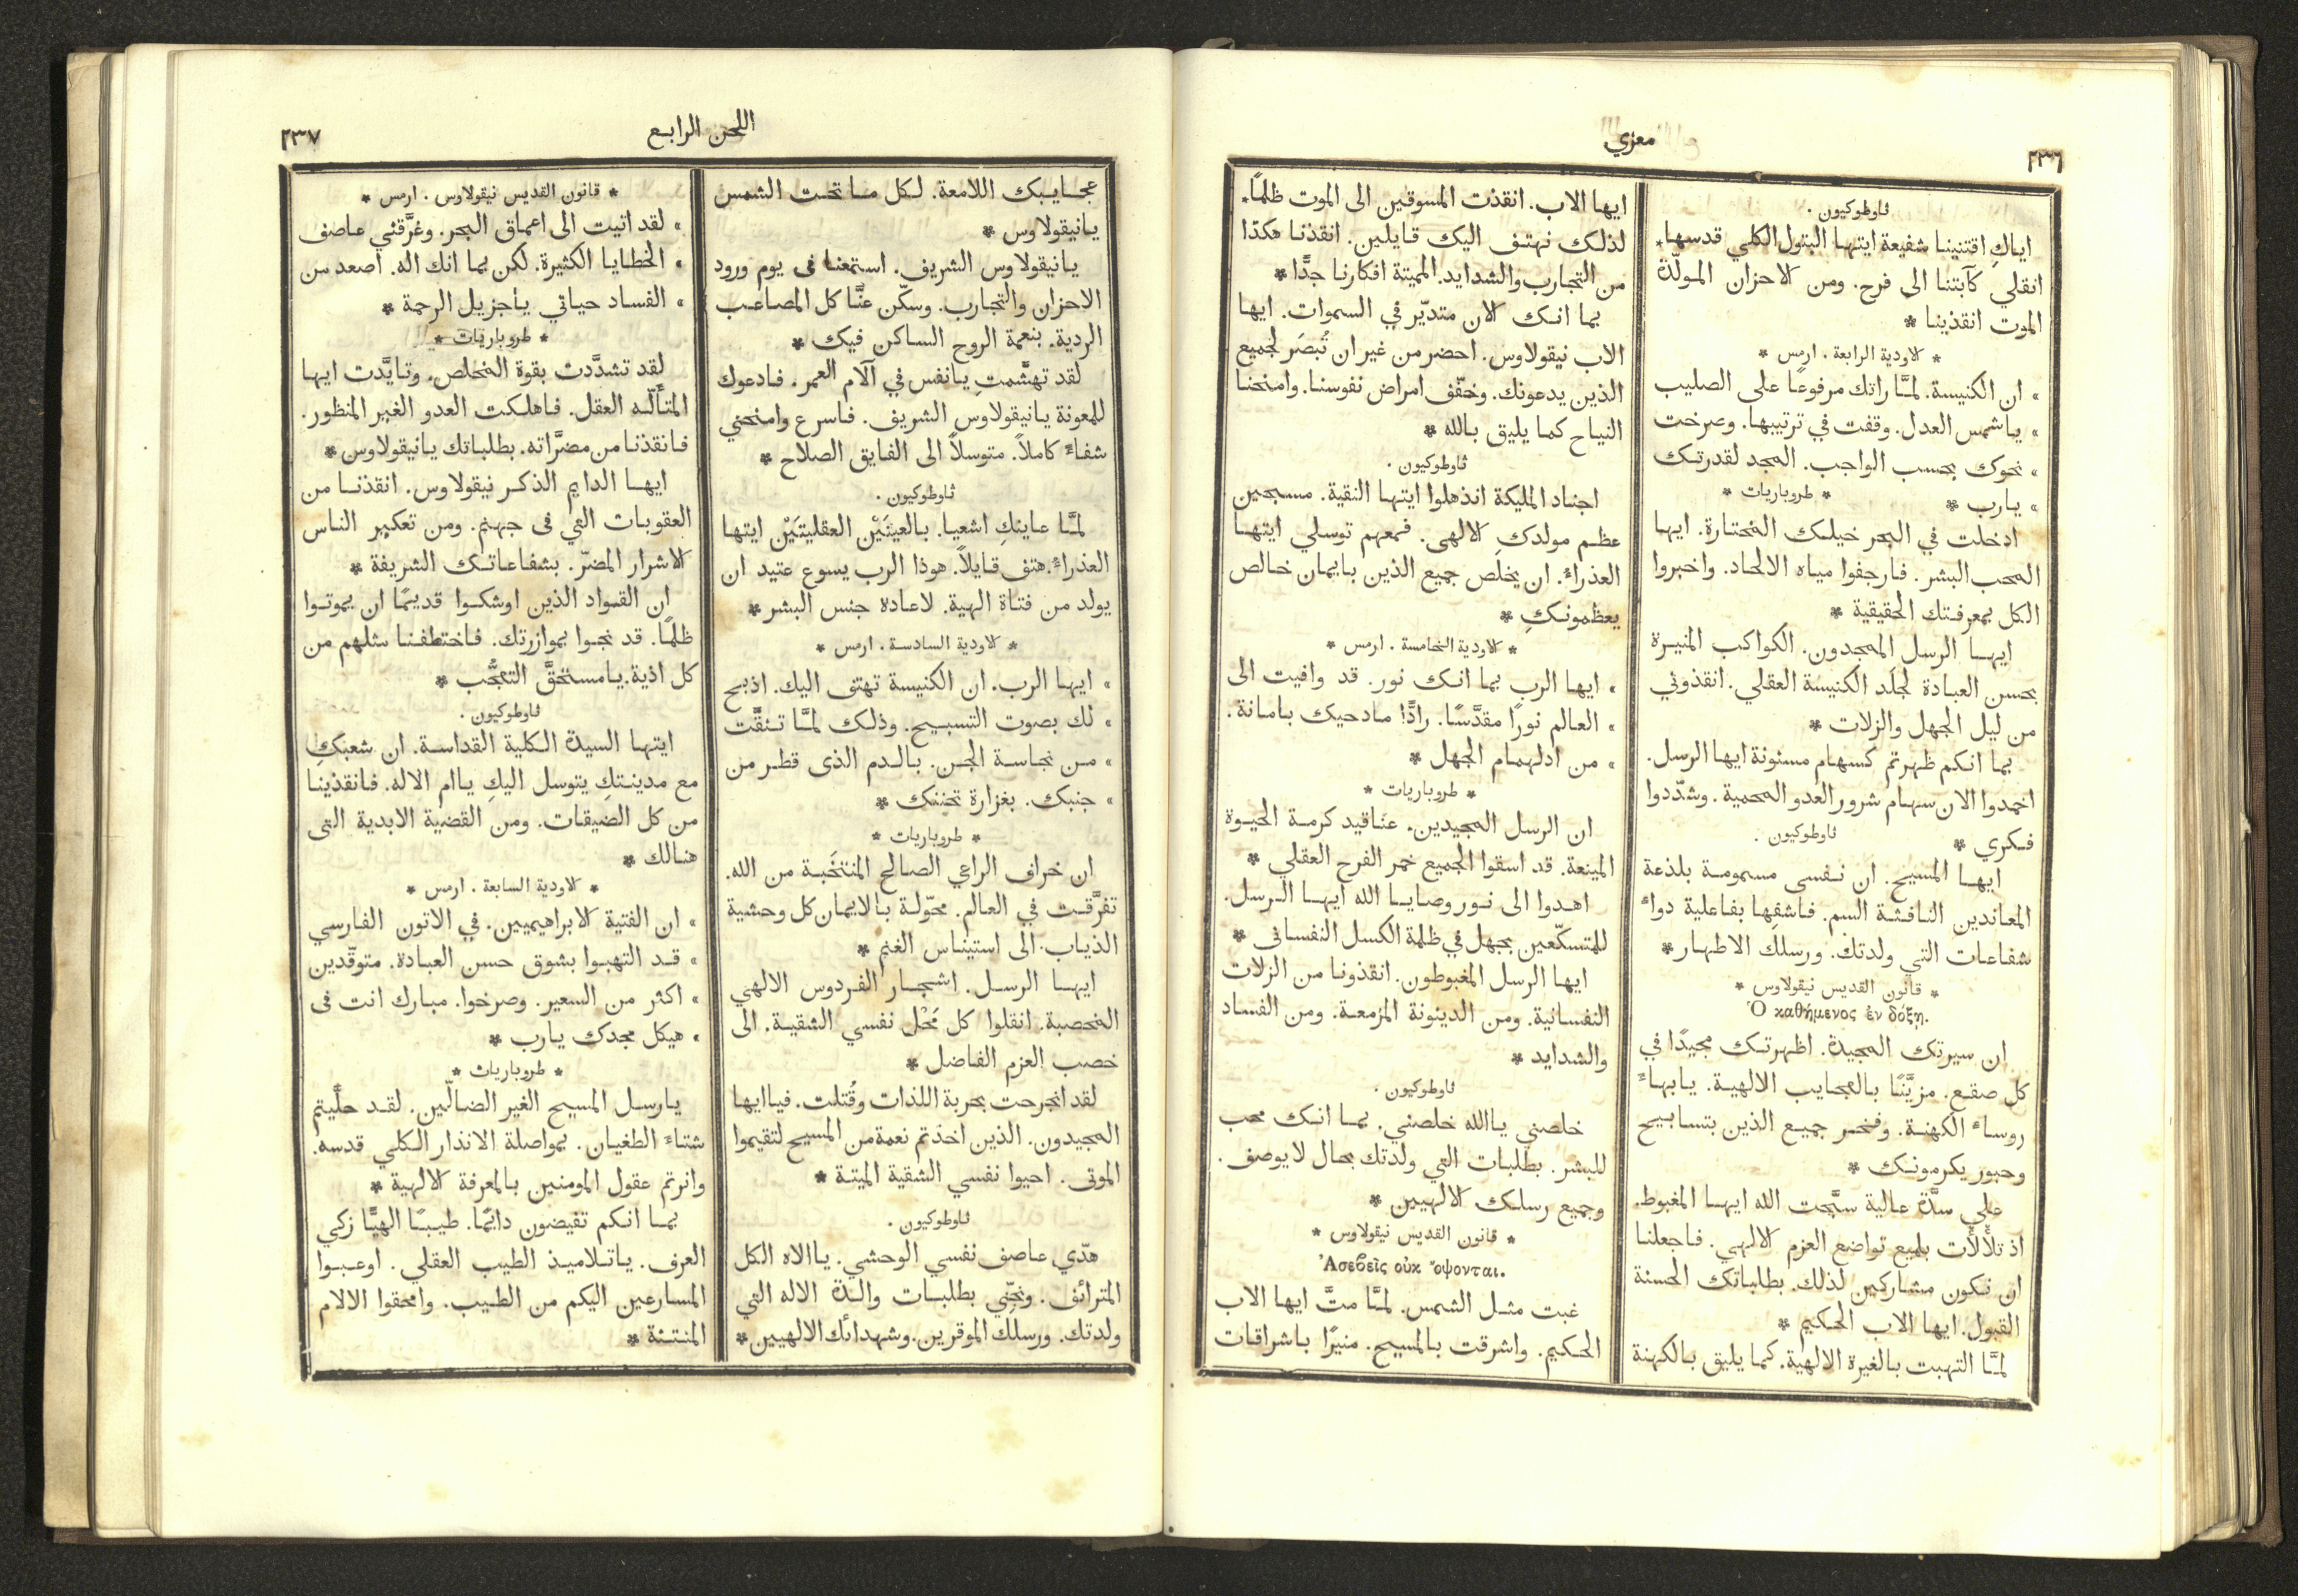 ٢٣٦
معزي
ثاوطوكيون .
اياكِ اقتنينا شفيعة ايتها البتول الكلي قدسها.
انقلي كآبتنا الى فرح. ومن الاحزان المولّدة
الموت انقذينا *
* الاودية الرابعة . ارمس *
» ان الكنيسة. لمَّا راتك مرفوعًا على الصليب
» ياشمس العدل. وقفت في ترتيبها. وصرخت
» نحوك بحسب الواجب. المجد لقدرتك
» يارب *
* طروباريات *
ادخلت في البحر خيلك المختارة. ايها
المحب البشر. فارجفوا مياه الالحاد. واخبروا
الكل بمعرفتك الحقيقية *
ايها الرسل المجدون. الكواكب المنيرة
بحسن العبادة لجلَد الكنيسة العقلي. انقذوني
من ليل الجهل والزلات *
بما انكم ظهرتم كسهام مسنونة ايها الرسل.
اخمدوا الان سهام شرور العدو المحمية. وشدّدوا
فكري *
ثاوطوكيون .
ايها المسيح. ان نفسى مسمومة بلذعة
المعاندين النافثة السم. فاشفِها بفاعلية دواء
شفاعات التي ولدتك. ورسلك الاطهار *
* قانون القديس نيقولاوس *
Ὁ καθήμενος ἐν δόξῃ.
ان سيرتك المجيدة. اظهرتك مجيدًا في
كل صقع. مزيَّنًا بالعجايب الالهية. يابهاء
روساء الكهنة. وفخر جميع الذين بتسابيح
وحبور يكرمونك *
على سدَّة عالية سبَّحت الله ايها المغبوط.
اذ تلألأت بلميع تواضع العزم الالهي. فاجعلنا
ان نكون مشاركين لذلك. بطلباتك الحسنة
القبول. ايها الاب الحكيم *
لمَّا التهبت بالغيرة الالهية. كما يليق بالكهنة
ايها الاب. انقذت المسوقين الى الموت ظلمًا.
لذلك نهتف اليك قايلين. انقذنا هكذا
من التجارب والشدايد. المميتة افكارنا جدًّا *
بما انك الان متديّر في السموات. ايها
الاب نيقولاوس. احضر من غير ان تُبصَر لجميع
الذين يدعونك. وخفّف امراض نفوسنا. وامنحنا
النياح كما يليق بالله *
ثاوطوكيون .
اجناد المليكة انذهلوا ايتها النقية. مسبحين
عظم مولدكِ الالهى. فمعهم توسلي ايتها
العذراء. ان يخلص جميع الذين بايمان خالص
يعظمونكِ *
* الاودية الخامسة . ارمس *
» ايها الرب بما انك نور. قد وافيت الى
» العالم نورًا مقدَّسًا. رادًّا مادحيك بامانة.
» من ادلهمام الجهل *
* طروباريات *
ان الرسل المجيدين. عناقيد كرمة الحيوة
المينعة. قد اسقوا الجميع خمر الفرح العقلي *
اهدوا الى نور وصايا الله ايها الرسل.
للمتسكّعين بجهل في ظلمة الكسل النفسانى *
ايها الرسل المغبوطون. انقذونا من الزلات
النفسانية. ومن الدينونة المزمعة. ومن الفساد
والشدايد *
ثاوطوكيون .
خلصني ياالله خلصني. بما انك محب
للبشر. بطلبات التي ولدتك بحال لا يوصف .
وجميع رسلك الالهيين *
* قانون القديس نيقولاوس *
Ἀσεβεῖς οὐκ ὄψονται.
غبت مثل الشمس. لمَّا متَّ ايها الاب
الحكيم. واشرقت بالمسيح. منيرًا باشراقات
اللحن الرابع
٢٣٧
عجايبك اللامعة. لكل ما تحت الشمس
يانيقولاوس *
يانيقولاوس الشريف. استمعنا فى يوم ورود
الاحزان والتجارب. وسكّن عنَّا كل المصاعب
الردية. بنعمة الروح الساكن فيك *
لقد تهشَّمتِ يانفس في آلام العمر. فادعوك
للمعونة يانيقولاوس الشريف. فاسرع وامنحني
شفاءً كاملاً. متوسلاً الى الفايق الصلاح *
ثاوطوكيون .
لمَّا عاينكِ اشعيا. بالعينَيْن العقليتَيْن ايتها
العذراء. هتف قايلاً. هوذا الرب يسوع عتيد ان
يولد من فتاة الهية. لاعادة جنس البشر *
* الاودية السادسة . ارمس *
» ايها الرب. ان الكنيسة تهتف اليك. اذبح
» لك بصوت التسبيح. وذلك لمَّا تنقَّت
» من نجاسة الجن. بالدم الذى قطر من
» جنبك. بغزارة تحننك *
* طروباريات *
ان خراف الراعي الصالح المنتخَبة من الله.
تفرَّقت في العالم. محوّلة بالايمان كل وحشية
الذياب. الى استيناس الغنم *
ايها الرسل. اشجار الفردوس الالهي
المخصبة. انقلوا كل مَحْل نفسي الشقية. الى
خصب العزم الفاضل *
لقد انجرحت بحربة اللذات وقُتلت. فياايها
المجيدون. الذين اخذتم نعمة من المسيح لتقيموا
الموتى. احيوا نفسي الشقية الميتة *
ثاوطوكيون .
هدّي عاصف نفسي الوحشي. ياالاه الكل
المترائف. ونجِّي بطلبات والدة الاله التي
ولدتك. ورسلك الموقرين. وشهدائك الالهيين *
* قانون القديس نيقولاوس . ارمس *
» لقد اتيت الى اعماق البحر. وغرَّقني عاصف
» الخطايا الكثيرة. لكن بما انك اله. اصعد من
» الفساد حياتي ياجزيل الرحمة *
* طروباريات *
لقد تشدَّدت بقوة المخلص. وتايَّدت ايها
المتألّه العقل. فاهلكت العدو الغير المنظور.
فانقذنا من مضرَّاته. بطلباتك يانيقولاوس *
ايها الدايم الذكر نيقولاوس. انقذنا من
العقوبات التي فى جهنم. ومن تعكير الناس
الاشرار المضرّ. بشفاعاتك الشريفة *
ان القواد الذين اوشكوا قديمًا ان يموتوا
ظلمًا. قد نجوا بموازرتك. فاختطفنا مثلهم من
كل اذية. يامستحقَّ التعجُّب *
ثاوطوكيون .
ايتها السيدة الكلية القداسة. ان شعبكِ
مع مدينتكِ يتوسل اليكِ ياام الاله. فانقذينا
من كل الضيقات. ومن القضية الابدية التى
هنالك *
* الاودية السابعة . ارمس *
» ان الفتية الابراهيميين. في الاتون الفارسي
» قد التهبوا بشوق حسن العبادة. متوقّدين
» اكثر من السعير. وصرخوا. مبارك انت فى
» هيكل مجدك يارب *
* طروباريات *
يارسل المسيح الغير الضالّين. لقد حلَّيتم
شتاء الطغيان. بمواصلة الانذار الكلي قدسه.
وانرتم عقول المومنين بالمعرفة الالهية *
بما انكم تفيضون دايمًا. طيبًا الهيًّا زكي
العرف. ياتلاميذ الطيب العقلي. اوعبوا
المسارعين اليكم من الطيب. وامحقوا الالام
المنتنة *